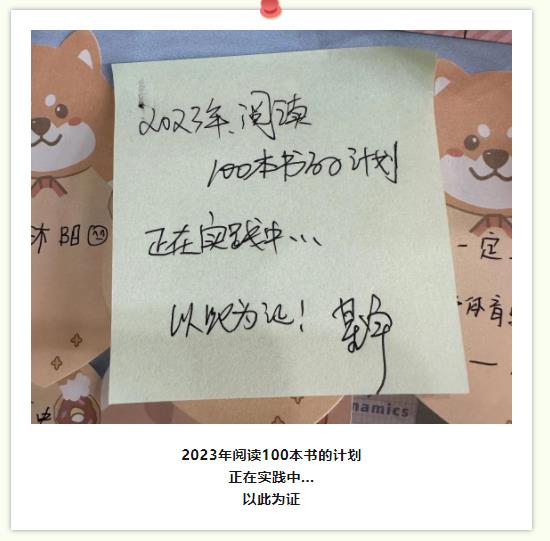 2023年、阅读
100本书的计划
正在实践中...
以此为证!
沐阳
一定
体育
中
namics
2023年阅读100本书的计划
正在实践中...
以此为证